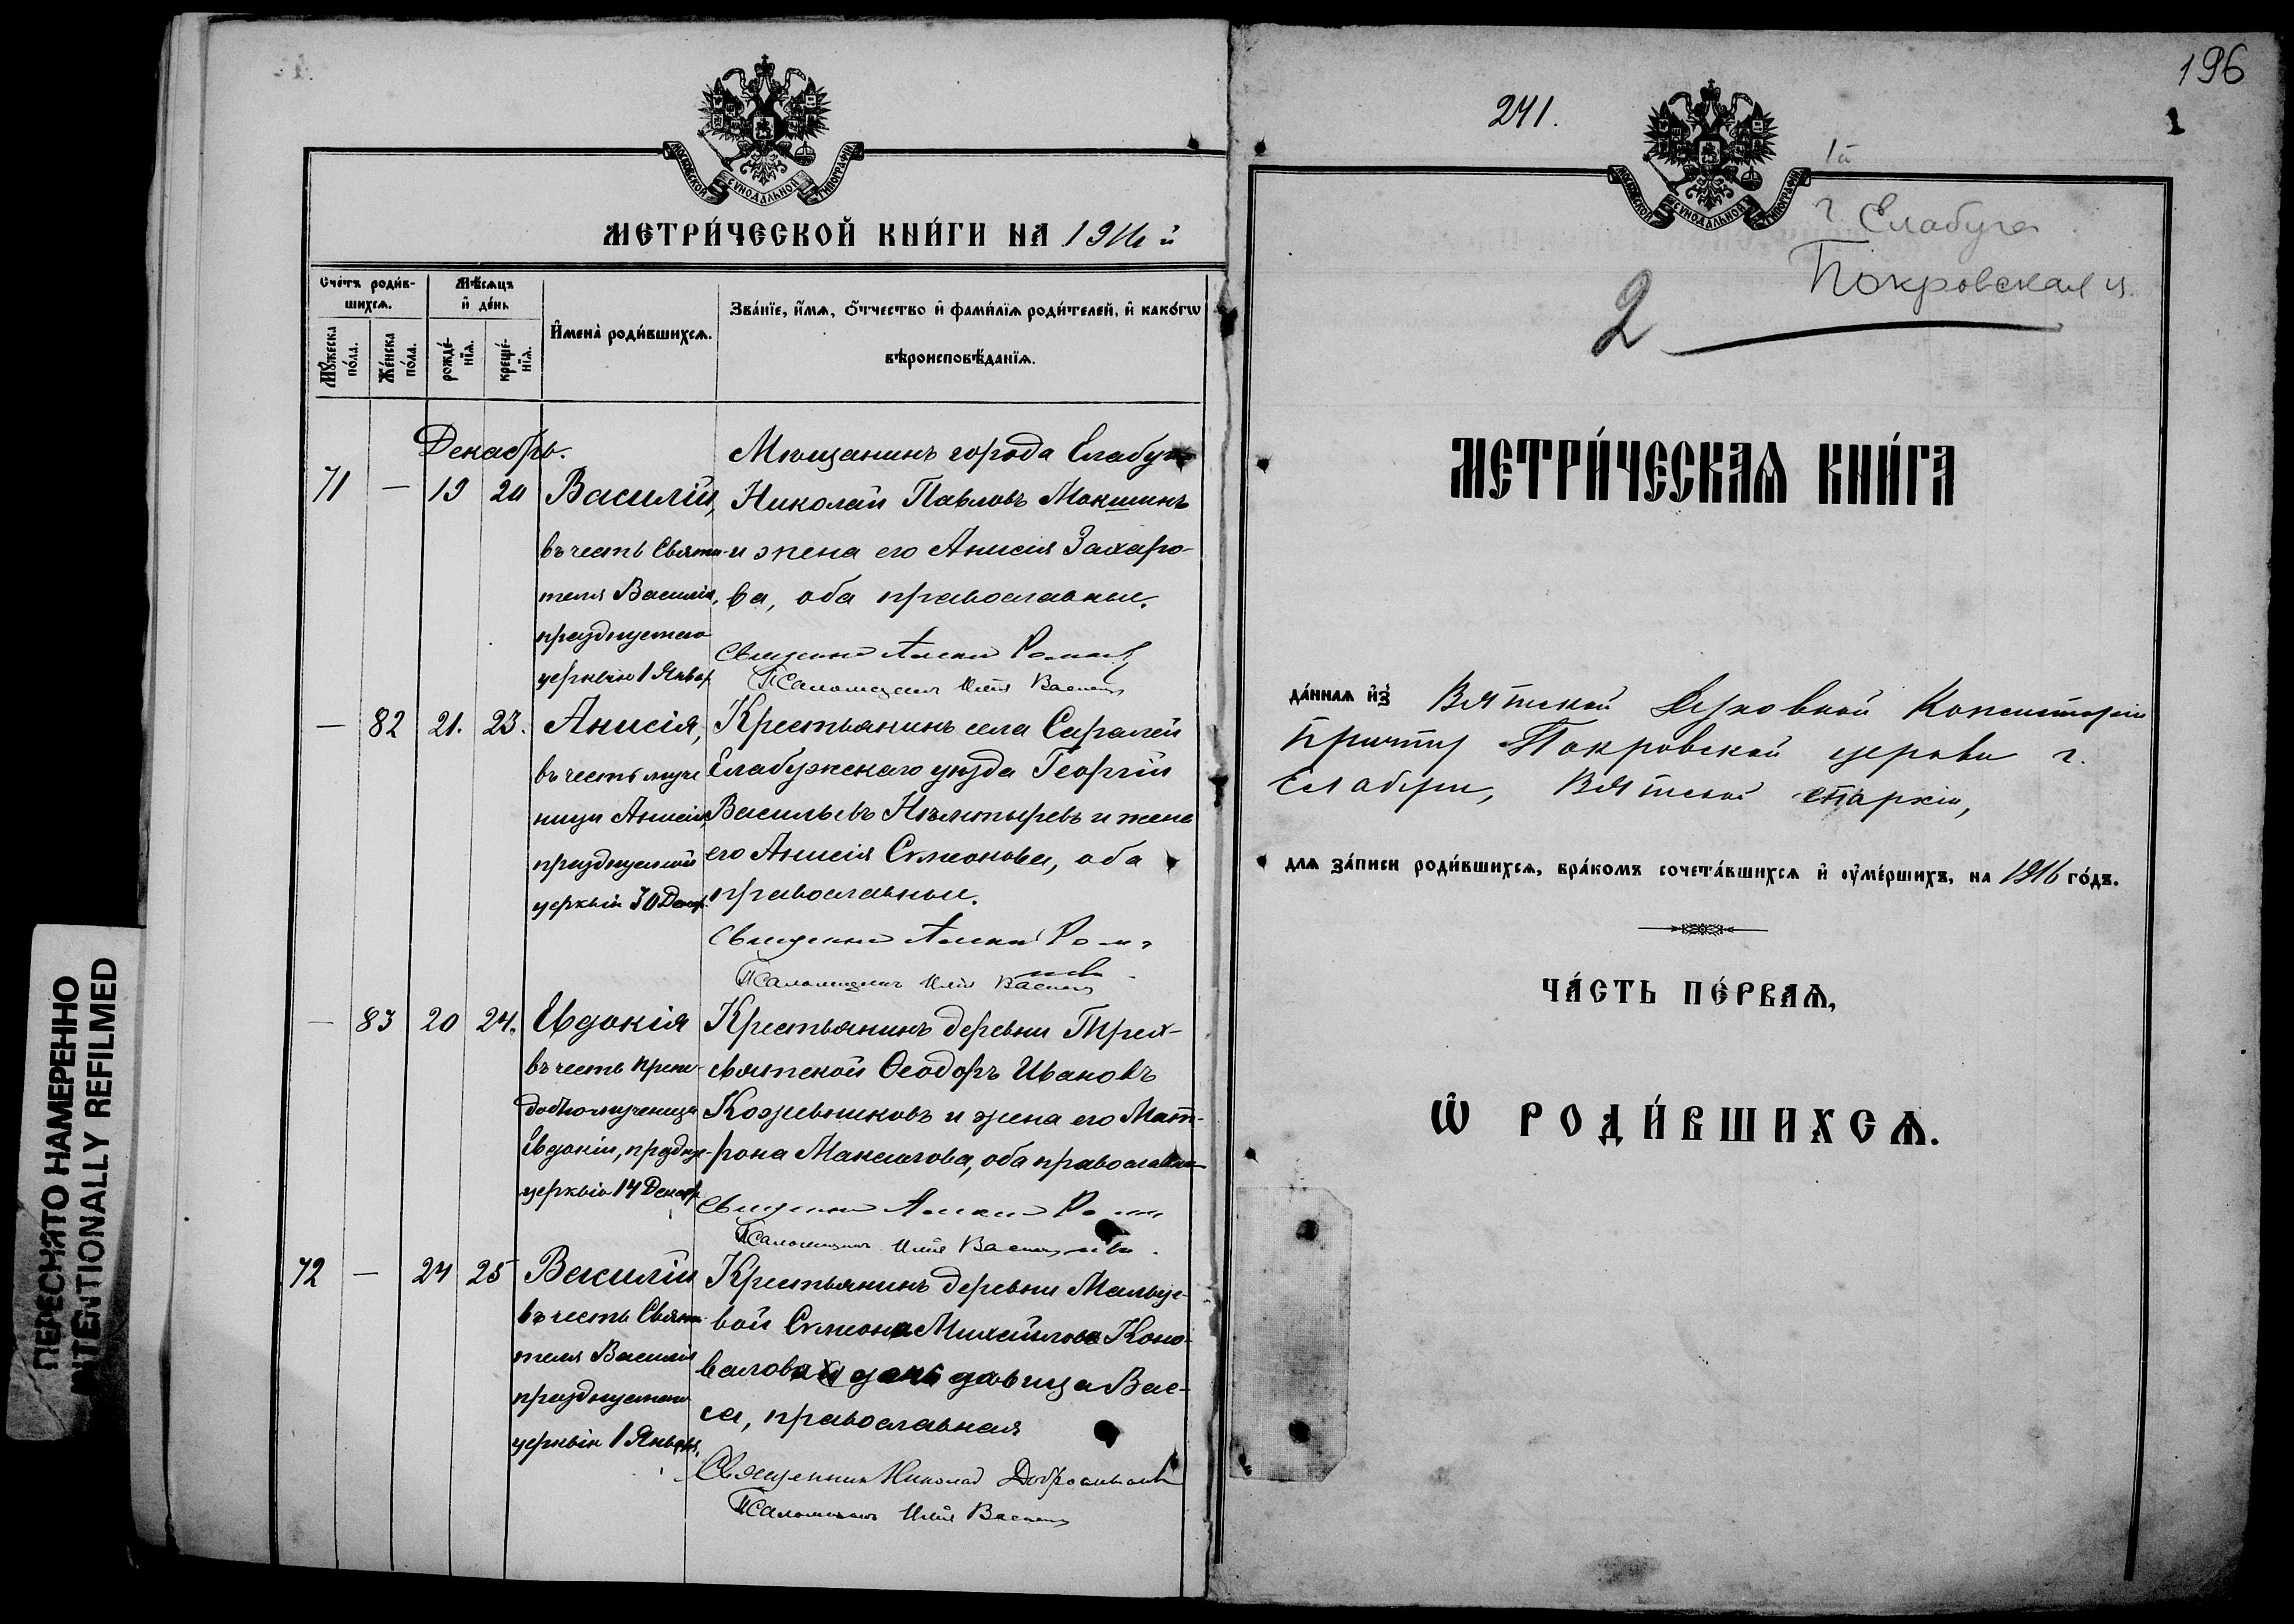 МОСКОВСКОЙ СѴНОДАЛЬНОЙ ТИПОГРАФІИ
МЕТРИ́ЧЕСКОЙ КНИ́ГИ НА 1916 й
Сче́тъ роди́в-
шихсѧ.
Мѣ́сѧцъ
и҆ де́нь
Мꙋ́жеска по́ла.
Же́нска по́ла.
рожде́-нїѧ.
креще́-нїѧ.
И҆мена̀ роди́вшихсѧ.
Зва́нїе, и҆́мѧ, ѻ҆́тчество и҆ фами́лїѧ роди́телей, и҆ како́гѡ
вѣроисповѣ́данїѧ.
Декабрь.
71 — 19 20 Василій,
въ честь Святи-
теля Василія,
празднуемаго
церковію 1 Январ
Мѣщанинъ города Елабуги
Николай Павловъ Мокшинъ
и жена его Анисія Захаро-
ва, оба православные.
Священникъ Алексій
Псаломщикъ Илія
— 82 21. 23. Анисія,
въ честь муче
ницы Анисіи,
празднуемой
церковію 30 Декаб.
Крестьянинъ села Саралей
Елабужскаго уѣзда Георгій
Васильевъ и жена
его Анисія Симеонова, оба
православные.
Священникъ Алексій
Псаломщикъ Илія
— 83 20 24. Евдокія
въ честь Препо-
добномученицы
Евдокіи, праздну-
церковію 14 Декабр
Крестьянинъ деревни Трех-
святской Ѳеодоръ Ивановъ
Кожевниковъ и жена его Мат-
рона Максимова, оба православные
Священникъ Алексій
Псаломщикъ Илія
72 — 24 25 Василій
въ честь Святи-
теля Василія
празднуемаго
церковію 1 Января.
Крестьянинъ деревни Мальце-
вой Симеона Михайлова Коно-
валова дочь дѣвица Вас-
са, православная
Священникъ Николай
Псаломщикъ Илія
ПЕРЕСНЯТО НАМЕРЕННО
INTENTIONALLY REFILMED
196
1
241.
1й
МОСКОВСКОЙ СѴНОДАЛЬНОЙ ТИПОГРАФІИ
г Елабуга
Покровская ц.
2
МЕТРИ́ЧЕСКАѦ КНИ́ГА
да́ннаѧ и҆з̾ Вятской Духовной Консисторіи
Причту Покровской церкви г.
Елабуги, Вятской епархіи,
длѧ за́писи роди́вшихсѧ, бра́комъ сочета́вшихсѧ и҆ ᲂу҆ме́ршихъ, на 1916 го́дъ.
ЧА́СТЬ ПЕ́РВАѦ,
Ѡ҆ РОДИ́ВШИХСѦ.